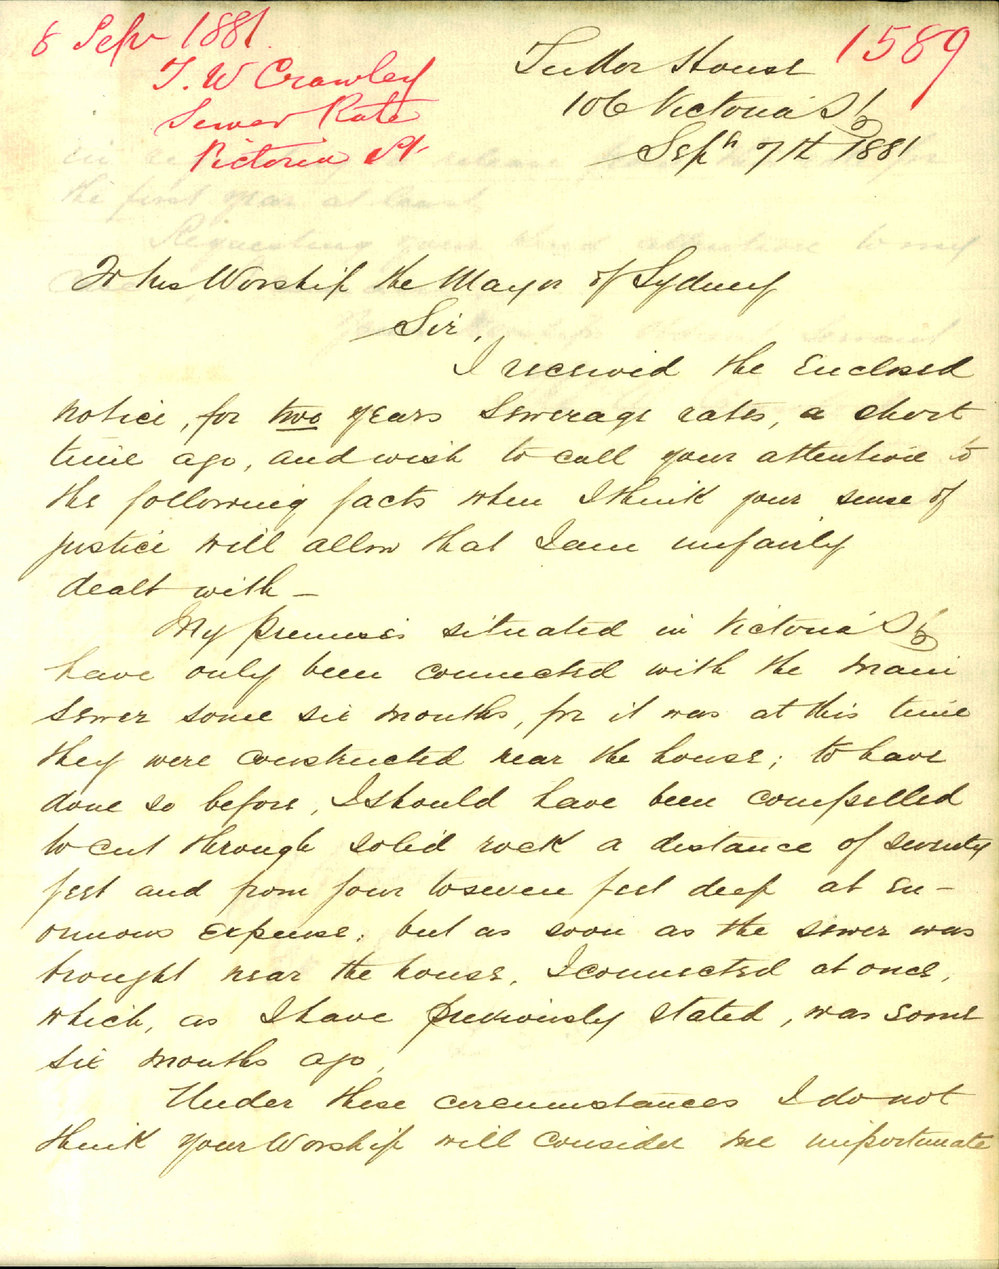 8 Sepr 1881.
T. W Crawley
Sewer Rate
Victoria St
1589
Tudor House
106 Victoria St
Sepr 7th 1881
To his Worship the Mayor of Sydney
Sir,
I received the enclosed
notice, for two years Sewerage rates, a short
time ago, and wish to call your attention to
the following facts when I think your sense of
justice will allow that I am unfairly
dealt with —
My premises situated in Victoria St
have only been connected with the main
sewer some six months, for it was at this time
they were constructed near the house; to have
done so before, I should have been compelled
to cut through solid rock a distance of seventy
feet and from four to seven feet deep at en-
ormous expense; but as soon as the sewer was
brought near the house, I connected at once,
which, as I have previously stated, was some
six months ago,
Under these circumstances I do not
think your Worship will consider me importunate